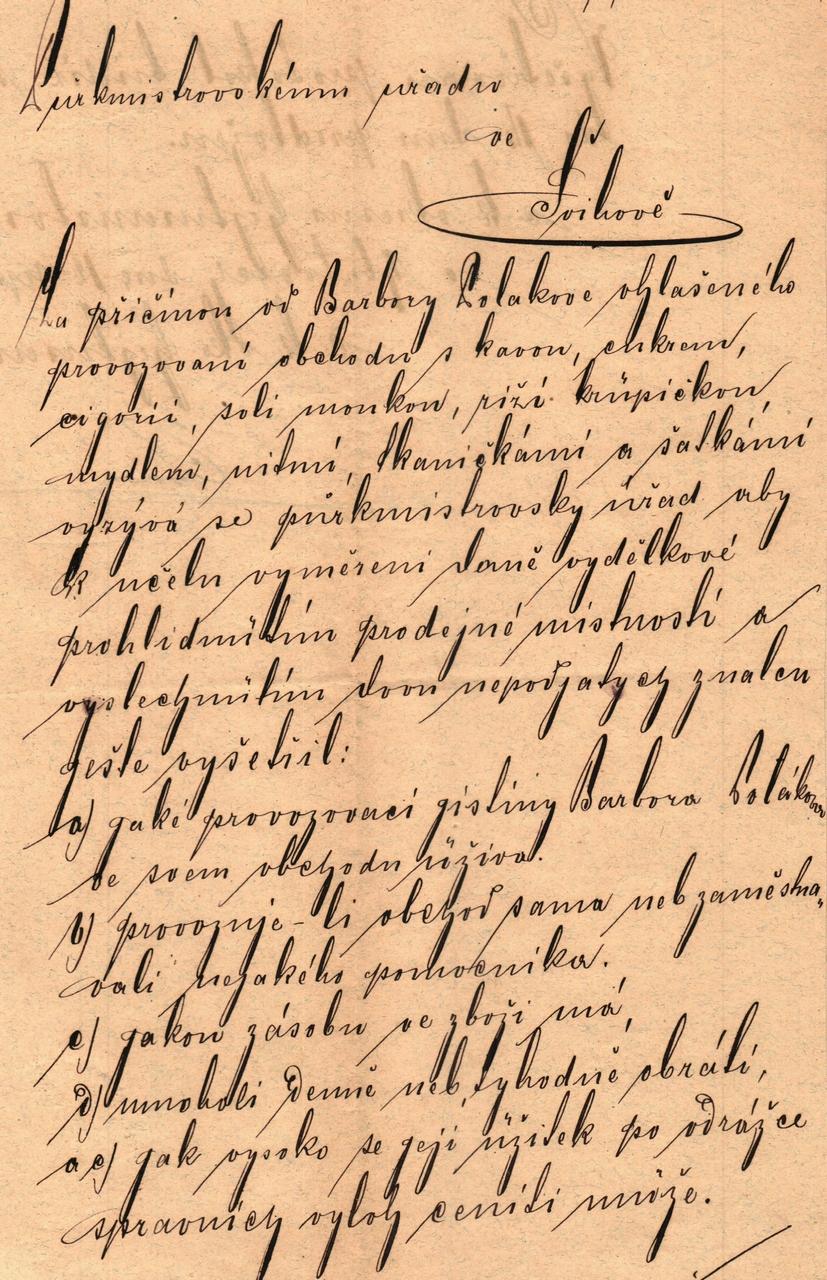 Purkmistrovskému uřadu
ve
Švihově
Za přičinou od Barbory Polakove ohlašeného
provozovaní obchodu s kavou, cukrem,
cigorii, soli moukou, riží krüpičkou,
mydlem, nitmí, tkaničkámi a šatkámi
vyzývá se půrkmistrovsky úřad aby
k učelu vyměreni daně vydělkové
prohlidnütím prodejné mistnosti a
vyslechnütím dvou nepodjatych znalcu
gešte vyšetřil:
a) gaké provozovaci gistiny Barbora Polákova
ve svem obchodu üživa.
b) provozuje-li obchod sama neb zaměstna„
vali nejakého pomocnika.
c) gakou zásobu ve zboži má,
d) mnoholi denně neb tyhodně obráti,
a e) gak vysoko se gejí üžitek po odrážce
spravnich vyloh ceniti může.